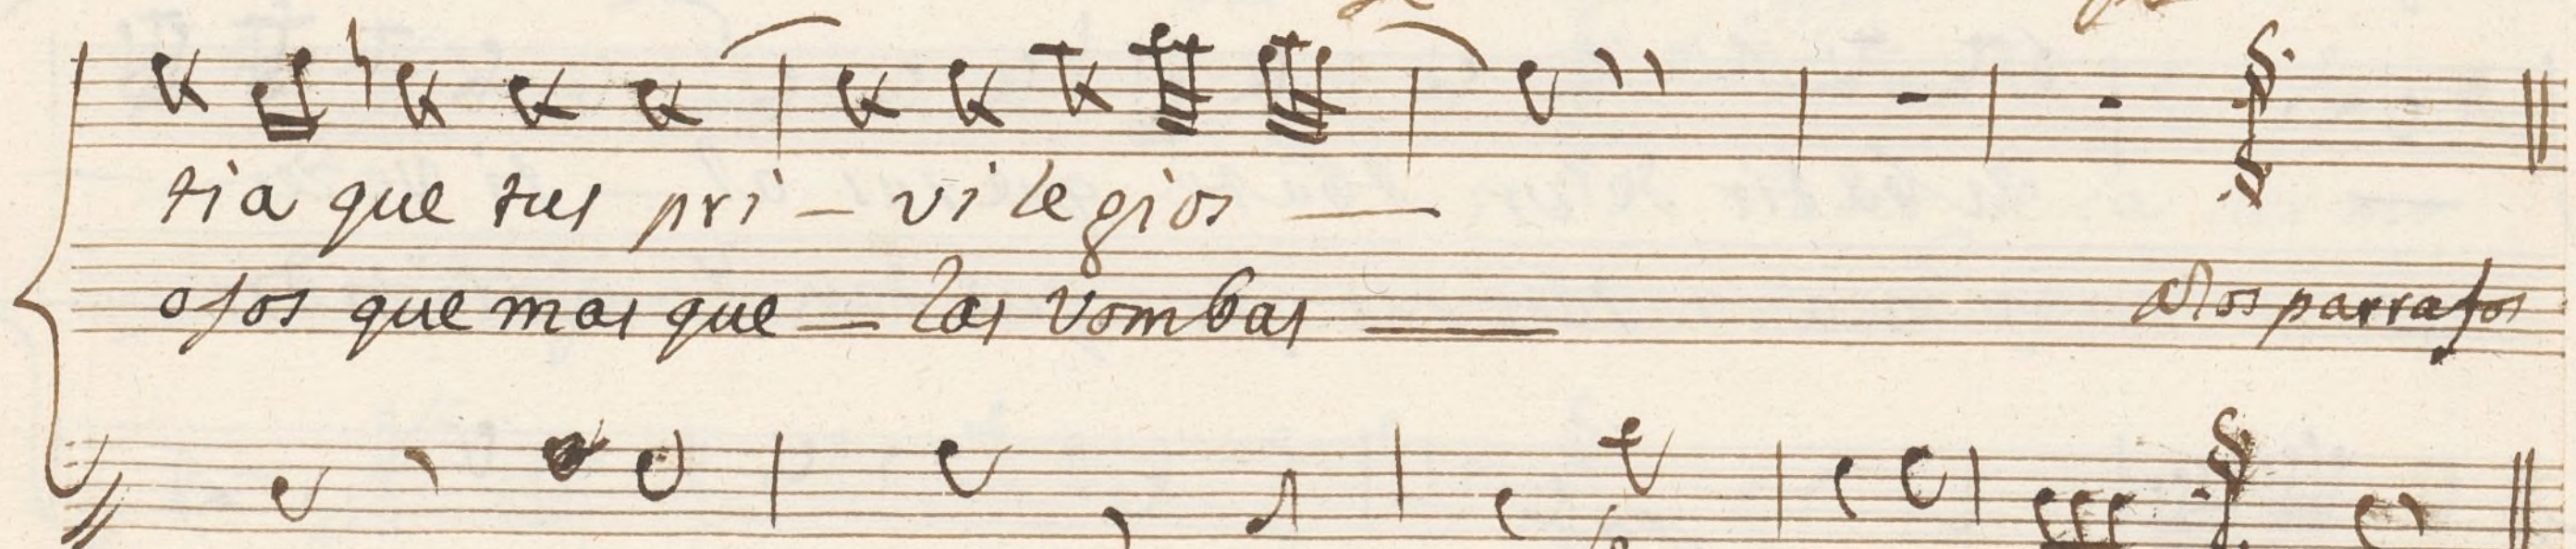 tia que tus pri - vilegios —
ojos que mas que — las vombas — Dos parrafos